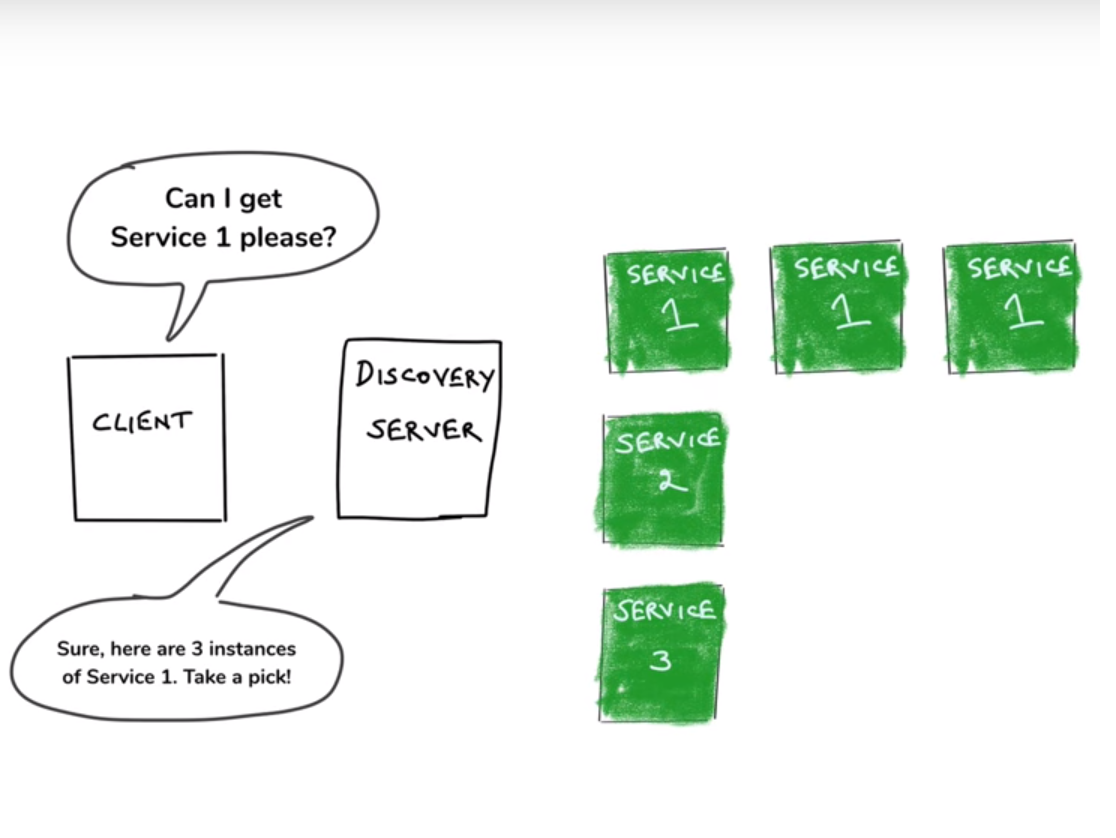 Can I get
Service 1 please?
CLIENT
DISCOVERY
SERVER
Sure, here are 3 instances
of Service 1. Take a pick!
SERVICE
1
SERVICE
1
SERVICE
1
SERVICE
2
SERVICE
3